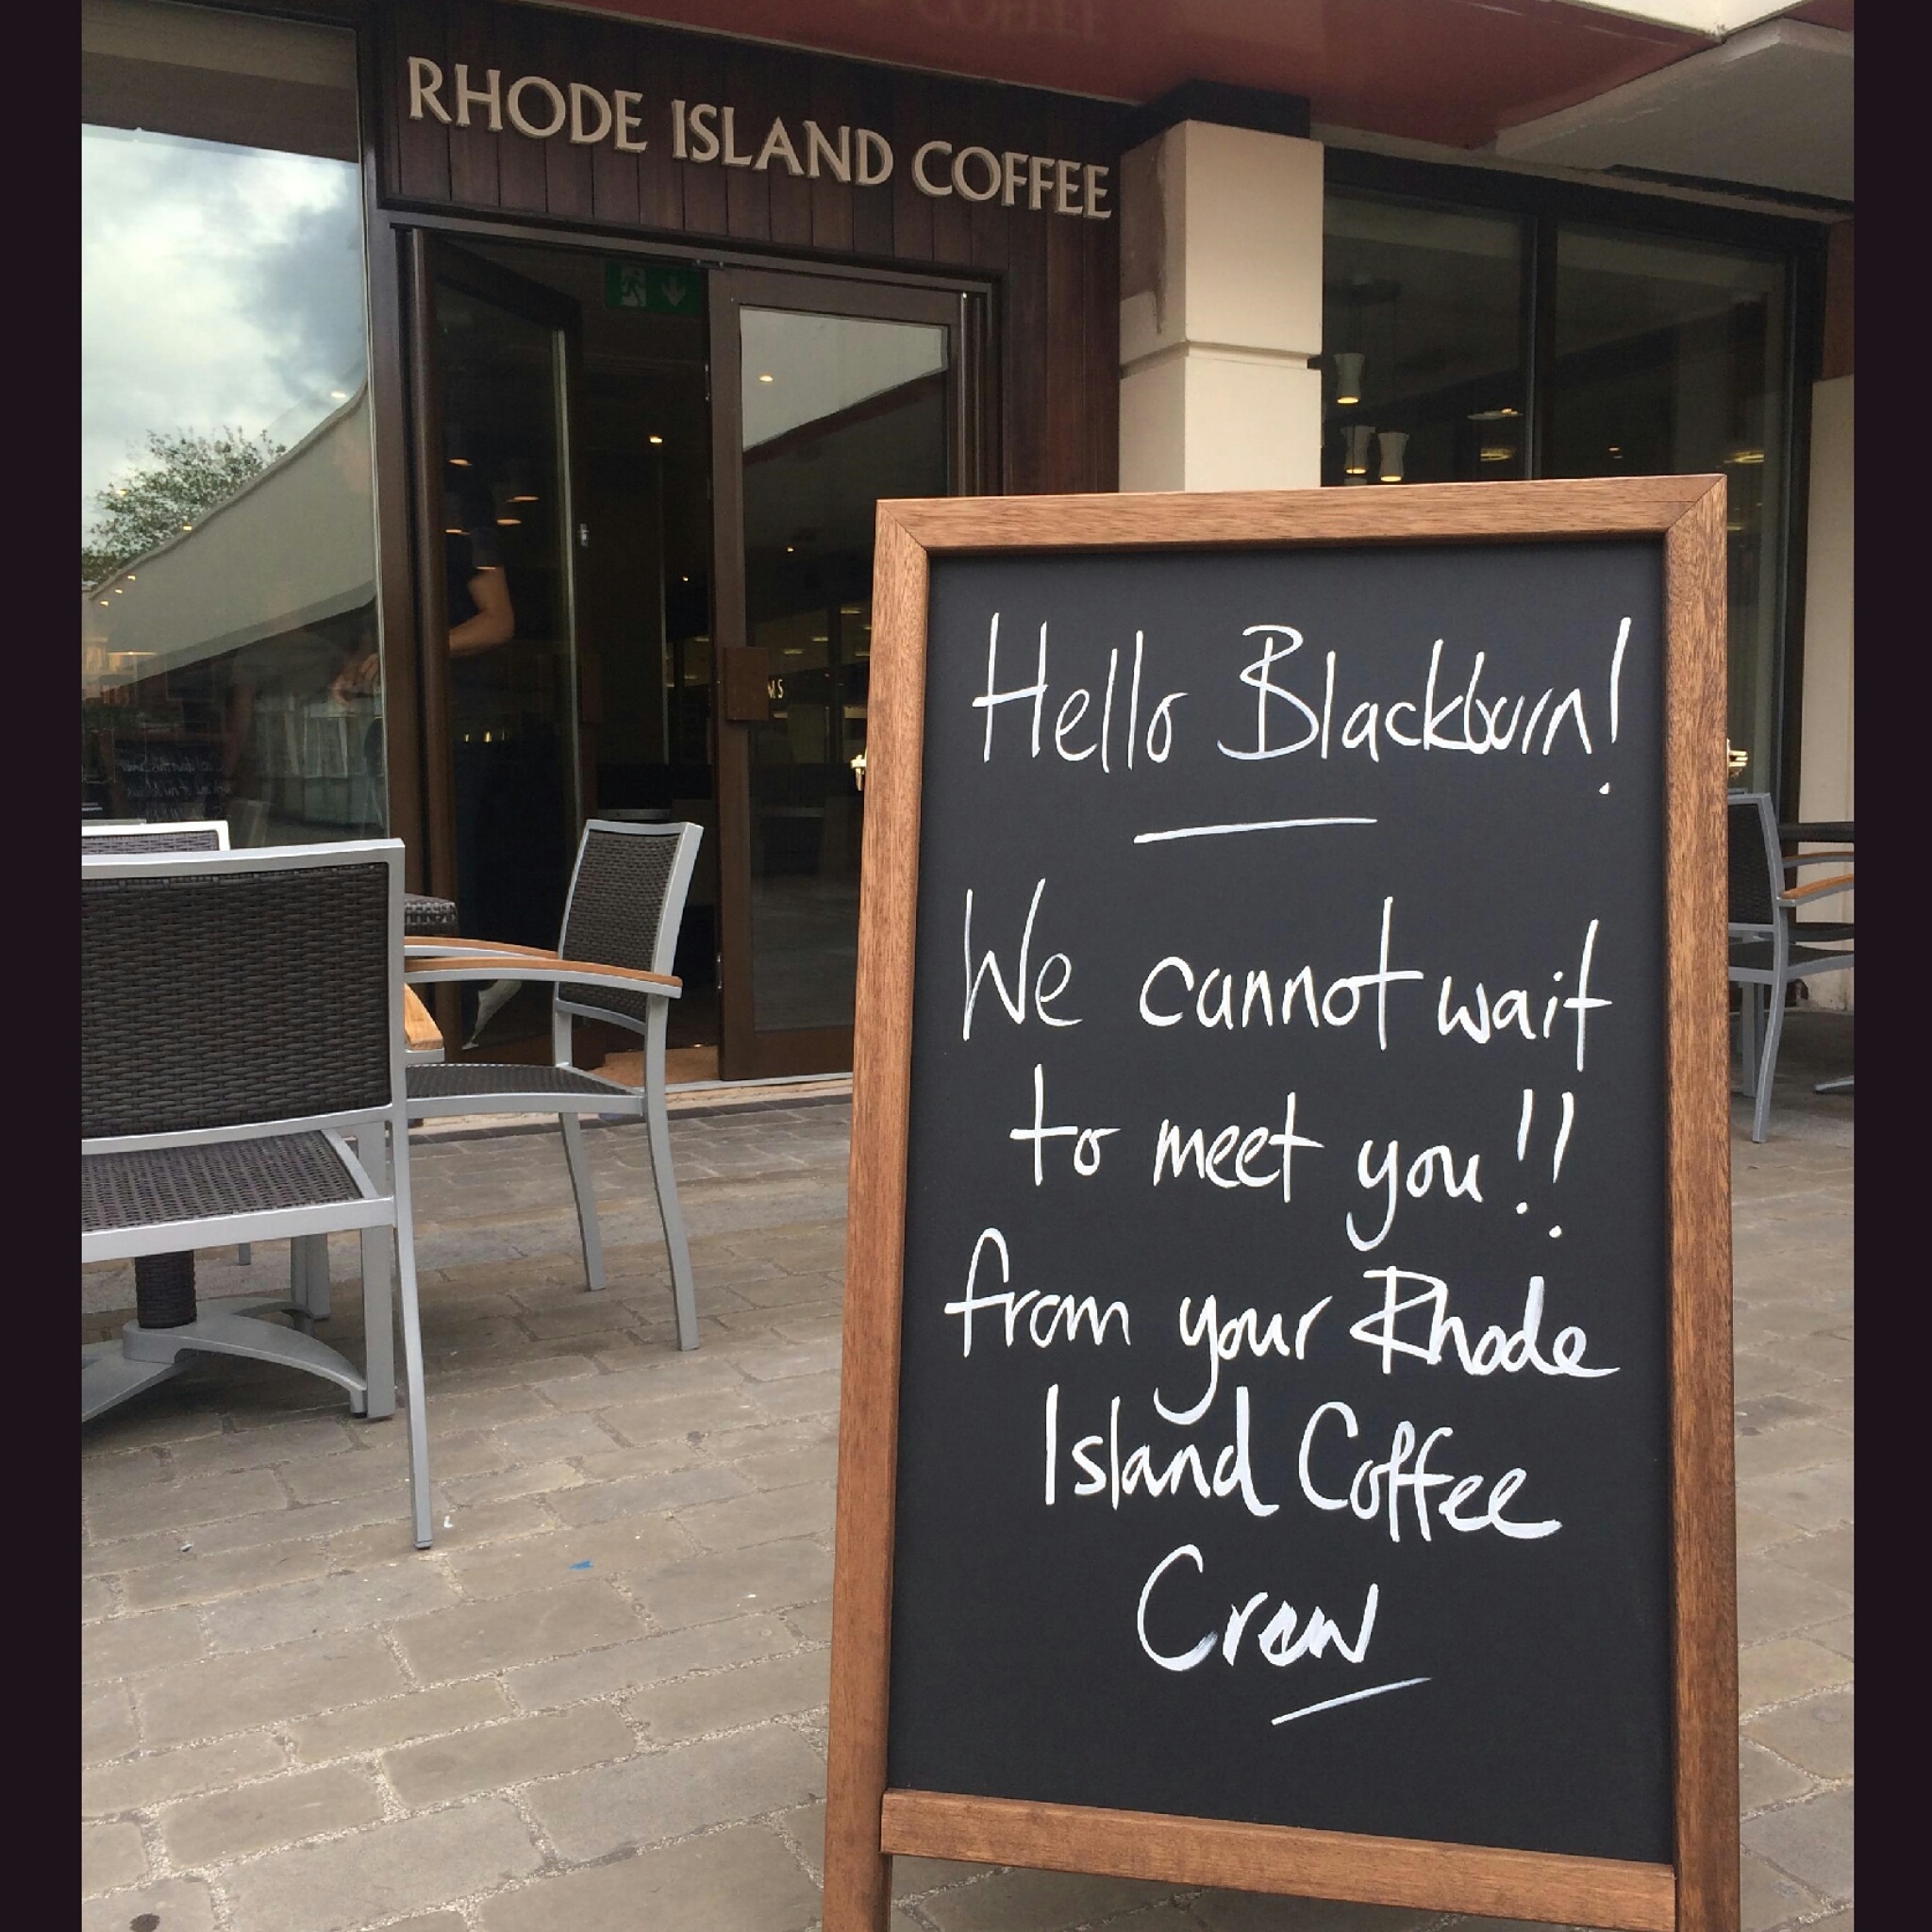 RHODE ISLAND COFFEE
Hello Blackburn!
We cannot wait
to meet you!!
from your Rhode
Island Coffee
Crew
COFFEE